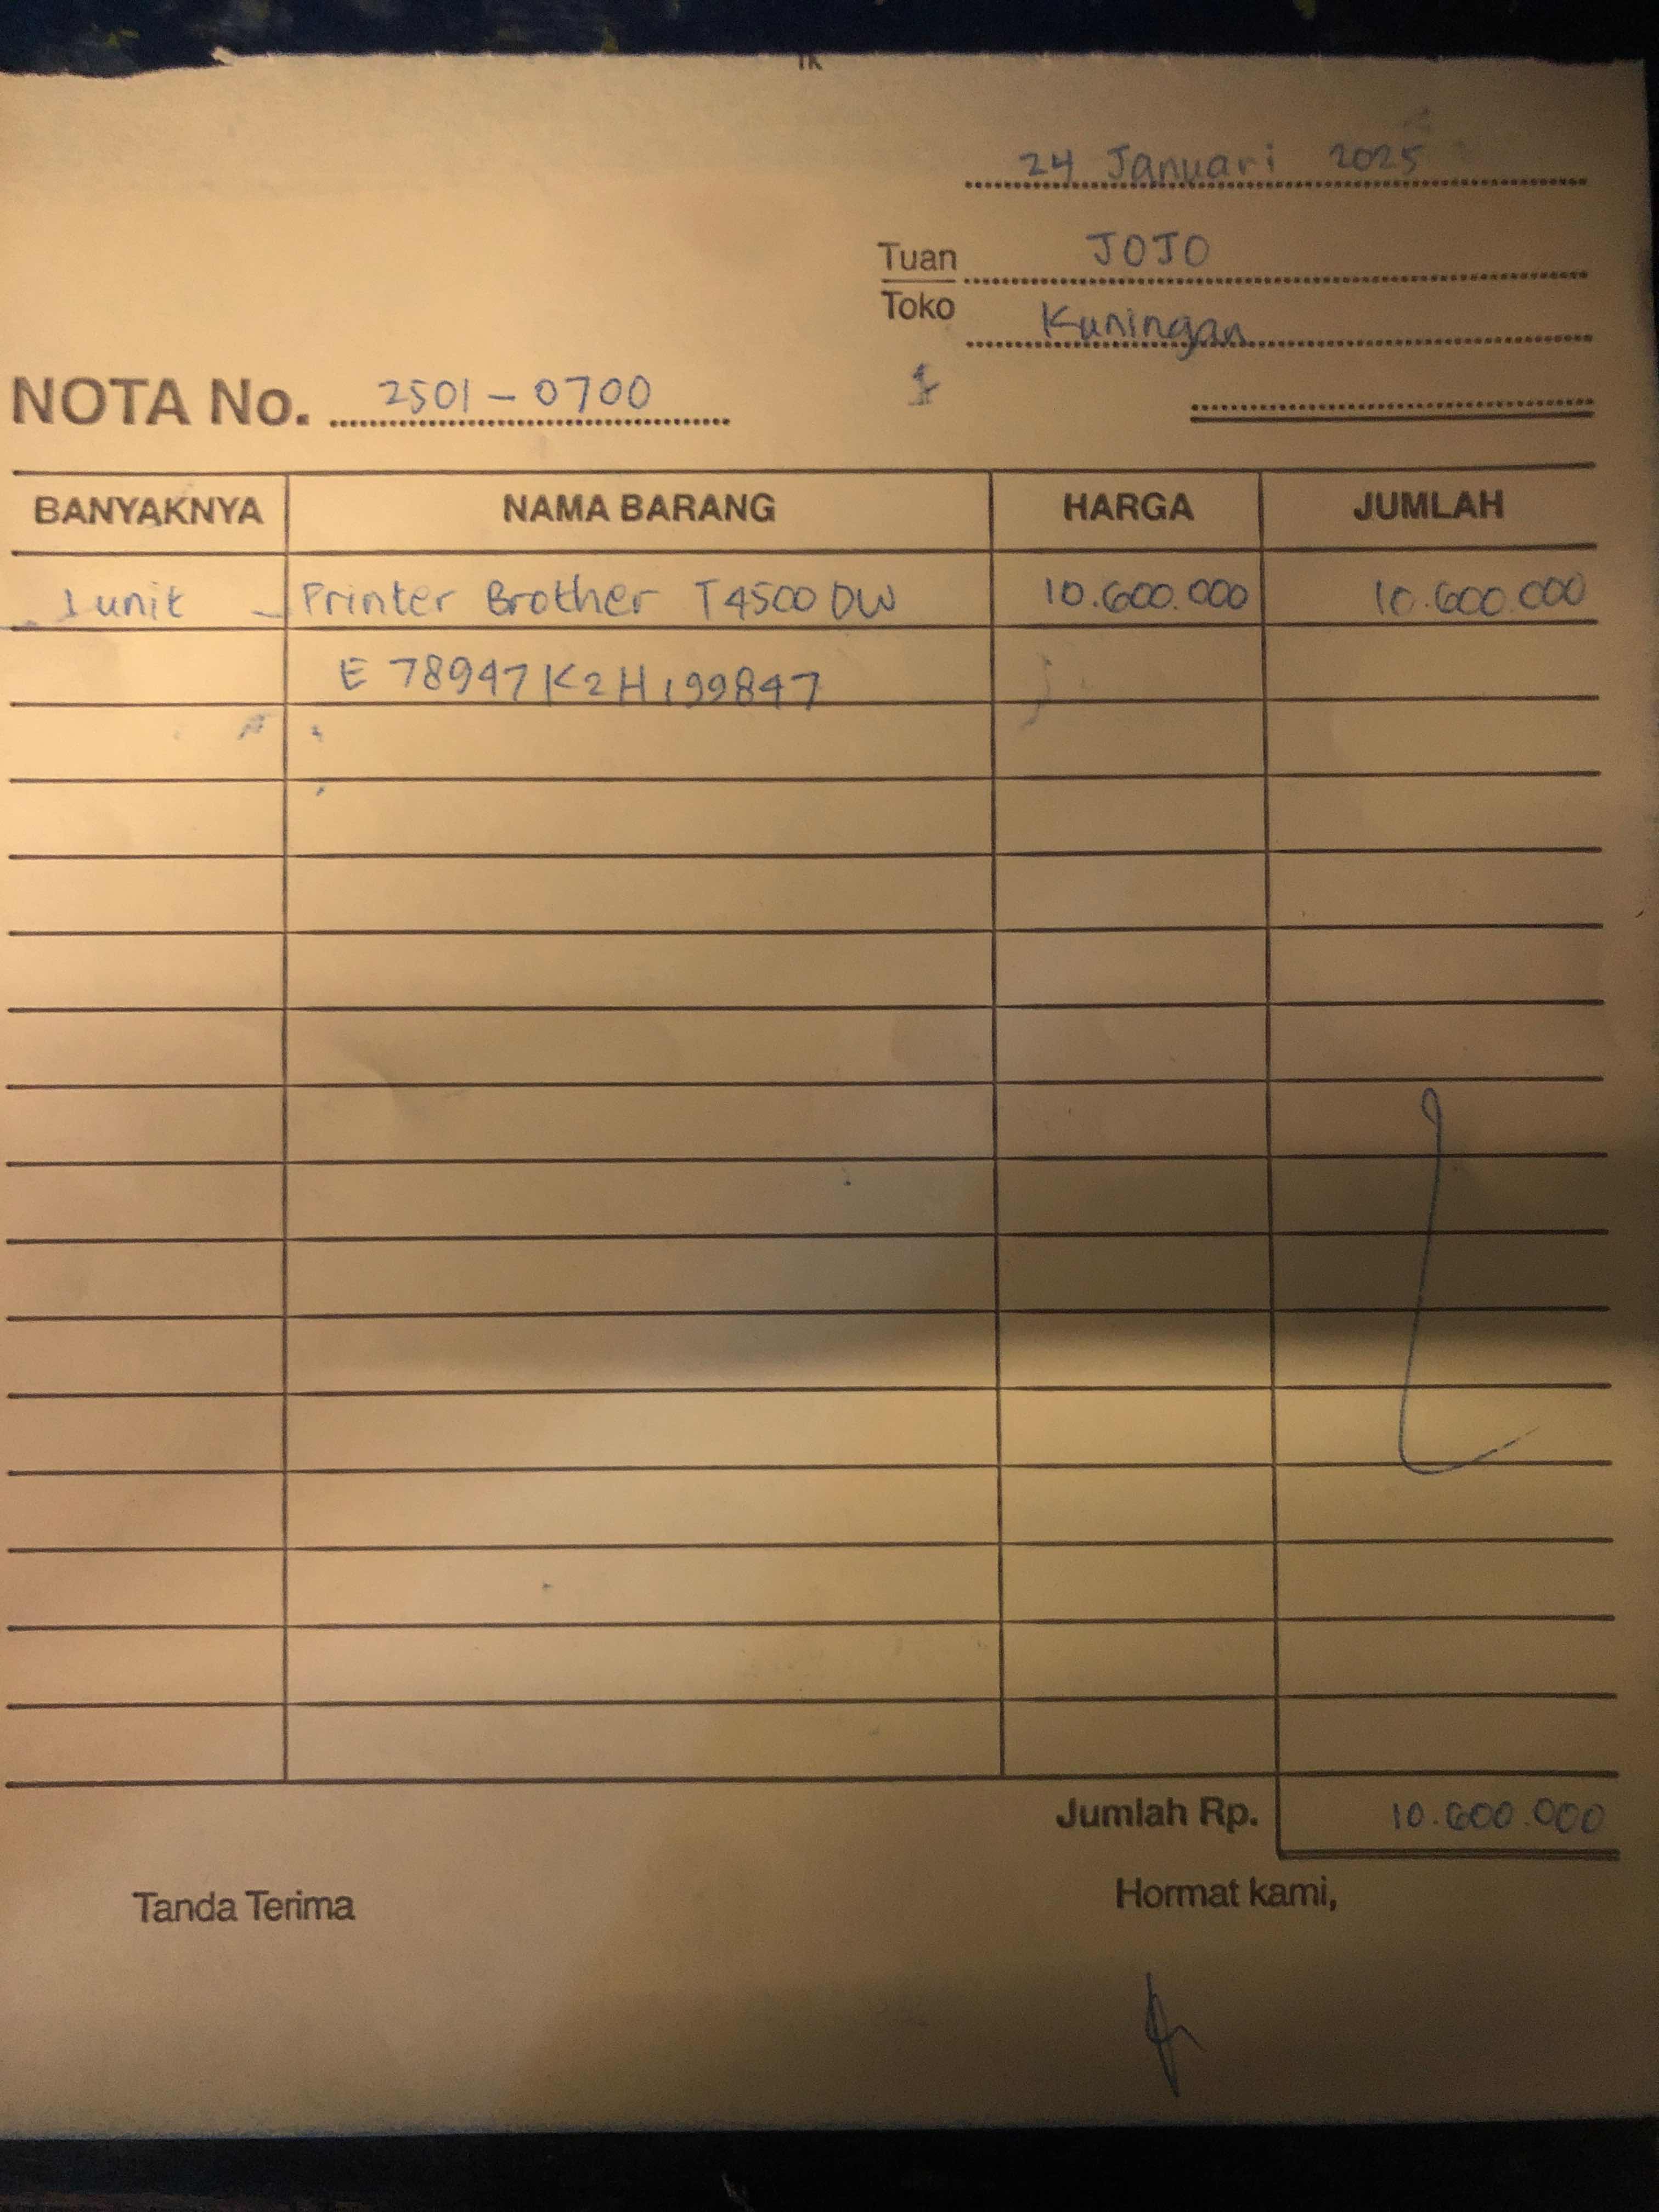 24 Januari 2025
Tuan JOJO
Toko Kuningan
NOTA No. 2501-0700
BANYAKNYA NAMA BARANG HARGA JUMLAH
1 unit - Printer Brother T4500 DW 10.600.000 10.600.000
E 78947K2H199847
Jumlah Rp. 10.600.000
Tanda Terima Hormat kami,